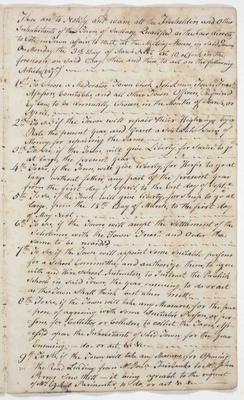 These are to Notify and warn all the Freeholders and Other
Inhabitants of this Town of
Qualified as the Law directs
to Vote in Town affairs to Meet at the Meeting House in said Town
on Monday the 3rd Day of March at 10 o'clock in the
forenoon on said Day Then and there to act on the following
Articles
1st To Choose a Moderator Town Clerk Selectmen Treasurer
Assessors Constable and all other Town Officers Required
by Law to be Annually Chosen in the Months of March or
April
2d To see if the Town will repair their Highways by a
Rate the present year and Grant a Suitable Sum of
Money for repairing the same
3d To see if the Town will give Liberty for Swine to go
at large the present year
4th To see if the Town will give Liberty for Horses to go at
large without fettering any part of the present year
from the first day of April to the last day of Sept
5th To see if the Town will give Liberty for Sheep to go at
large from the 15th Day of March to the first day
of May next
6th To see if the Town will accept the Settlement of the
Selectmen with the Town Treasr and Order the
same to be recorded
7th To see if the Town will appoint some Suitable persons
for a School Committee and authorize them to agree
with an School Instructor to Instruct the Publick
School in said Town the year ensuing to do or act
as the Town shall think best when met
8th To see if the Town will take any Measures for the purpose
of agreeing with some Suitable Person, or persons
for Collector or Collectors to collect the Taxes
assessed upon the Inhabitants of said Town for the year
Ensuing do or act &c
9th To see if the Town will take any Measures for Opening
the Road leading from
to
being agreeable to the request
to do or act &c